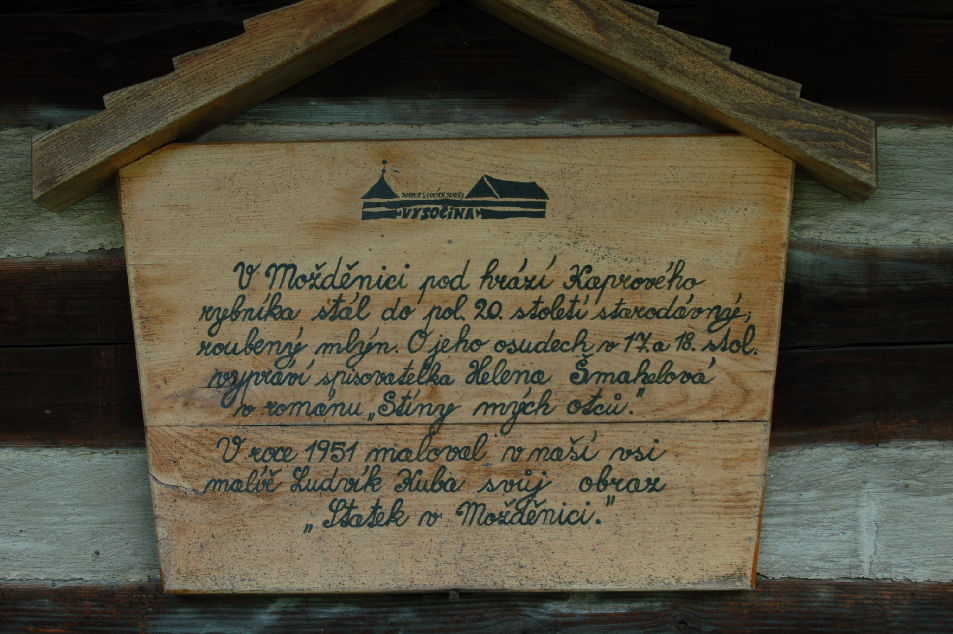 SOUBOR LIDOVÝCH STAVEB
VYSOČINA
V Možděnici pod hrází Kaprového
rybníka stál do pol. 20. století starodávný,
roubený mlýn. O jeho osudech v 17. a 18. stol.
vypráví spisovatelka Helena Šmahelová
v románu „Stíny mých otců."
V roce 1951 maloval v naší vsi
malíř Ludvík Kuba svůj obraz
„Statek v Možděnici."